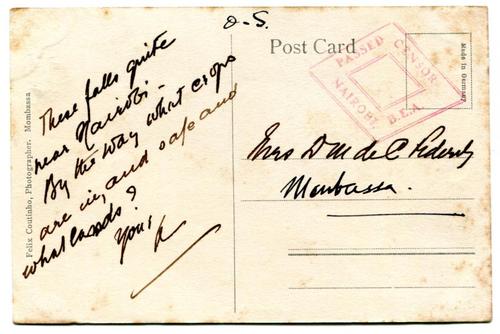 O.S.
Post Card
Made in Germany
PASSED CENSOR
NAIROBI, B.E.A.
Felix Coutinho, Photographer, Mombassa
These falls quite
near Nairobi –
By the way what crops
are in, and safe and
what lands?
Yours
Mrs D M de C
Mombassa.